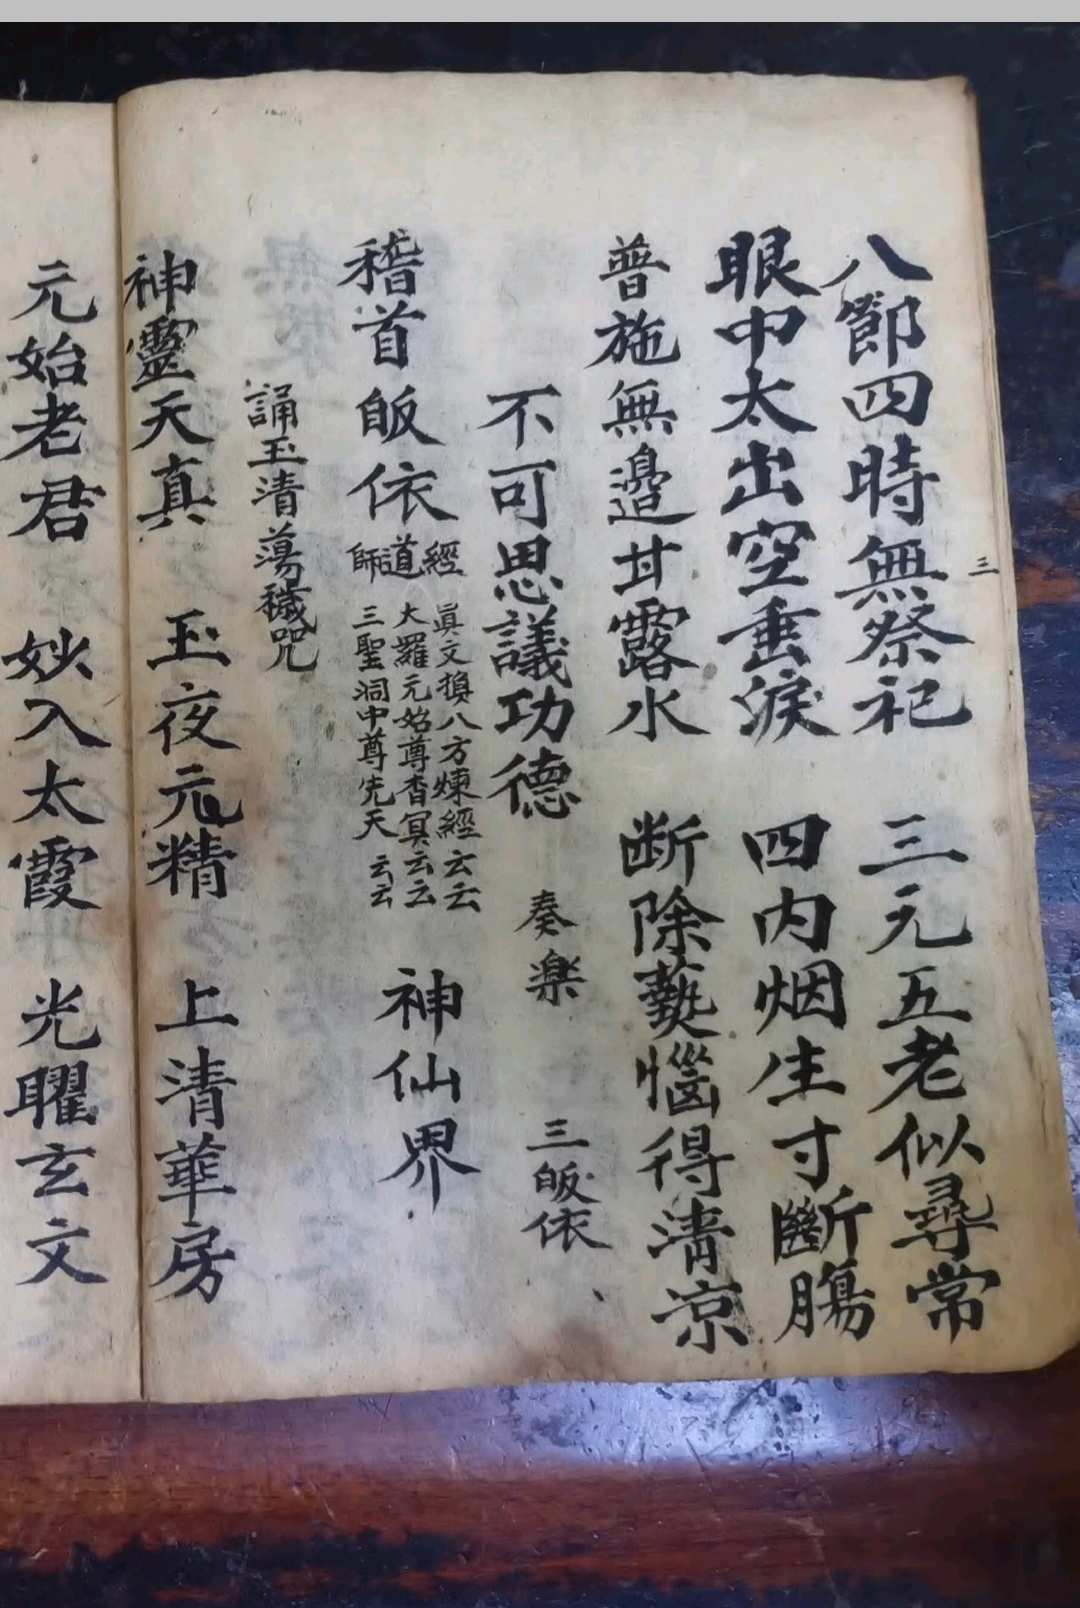 三
八節四時無祭祀　三元五老似尋常
眼中太出空垂淚　四内烟生寸斷腸
普施無邊甘露水　断除熱惱得清凉
不可思議功德　奏楽　三皈依
稽首皈依　神仙界
經　眞文㨂八方煉經云云
道　大羅元始尊杳冥云云
師　三聖洞中尊先天云云
誦玉清蕩穢咒
神靈天真　玉夜元精　上清華房
元始老君　妙入太霞　光耀玄文